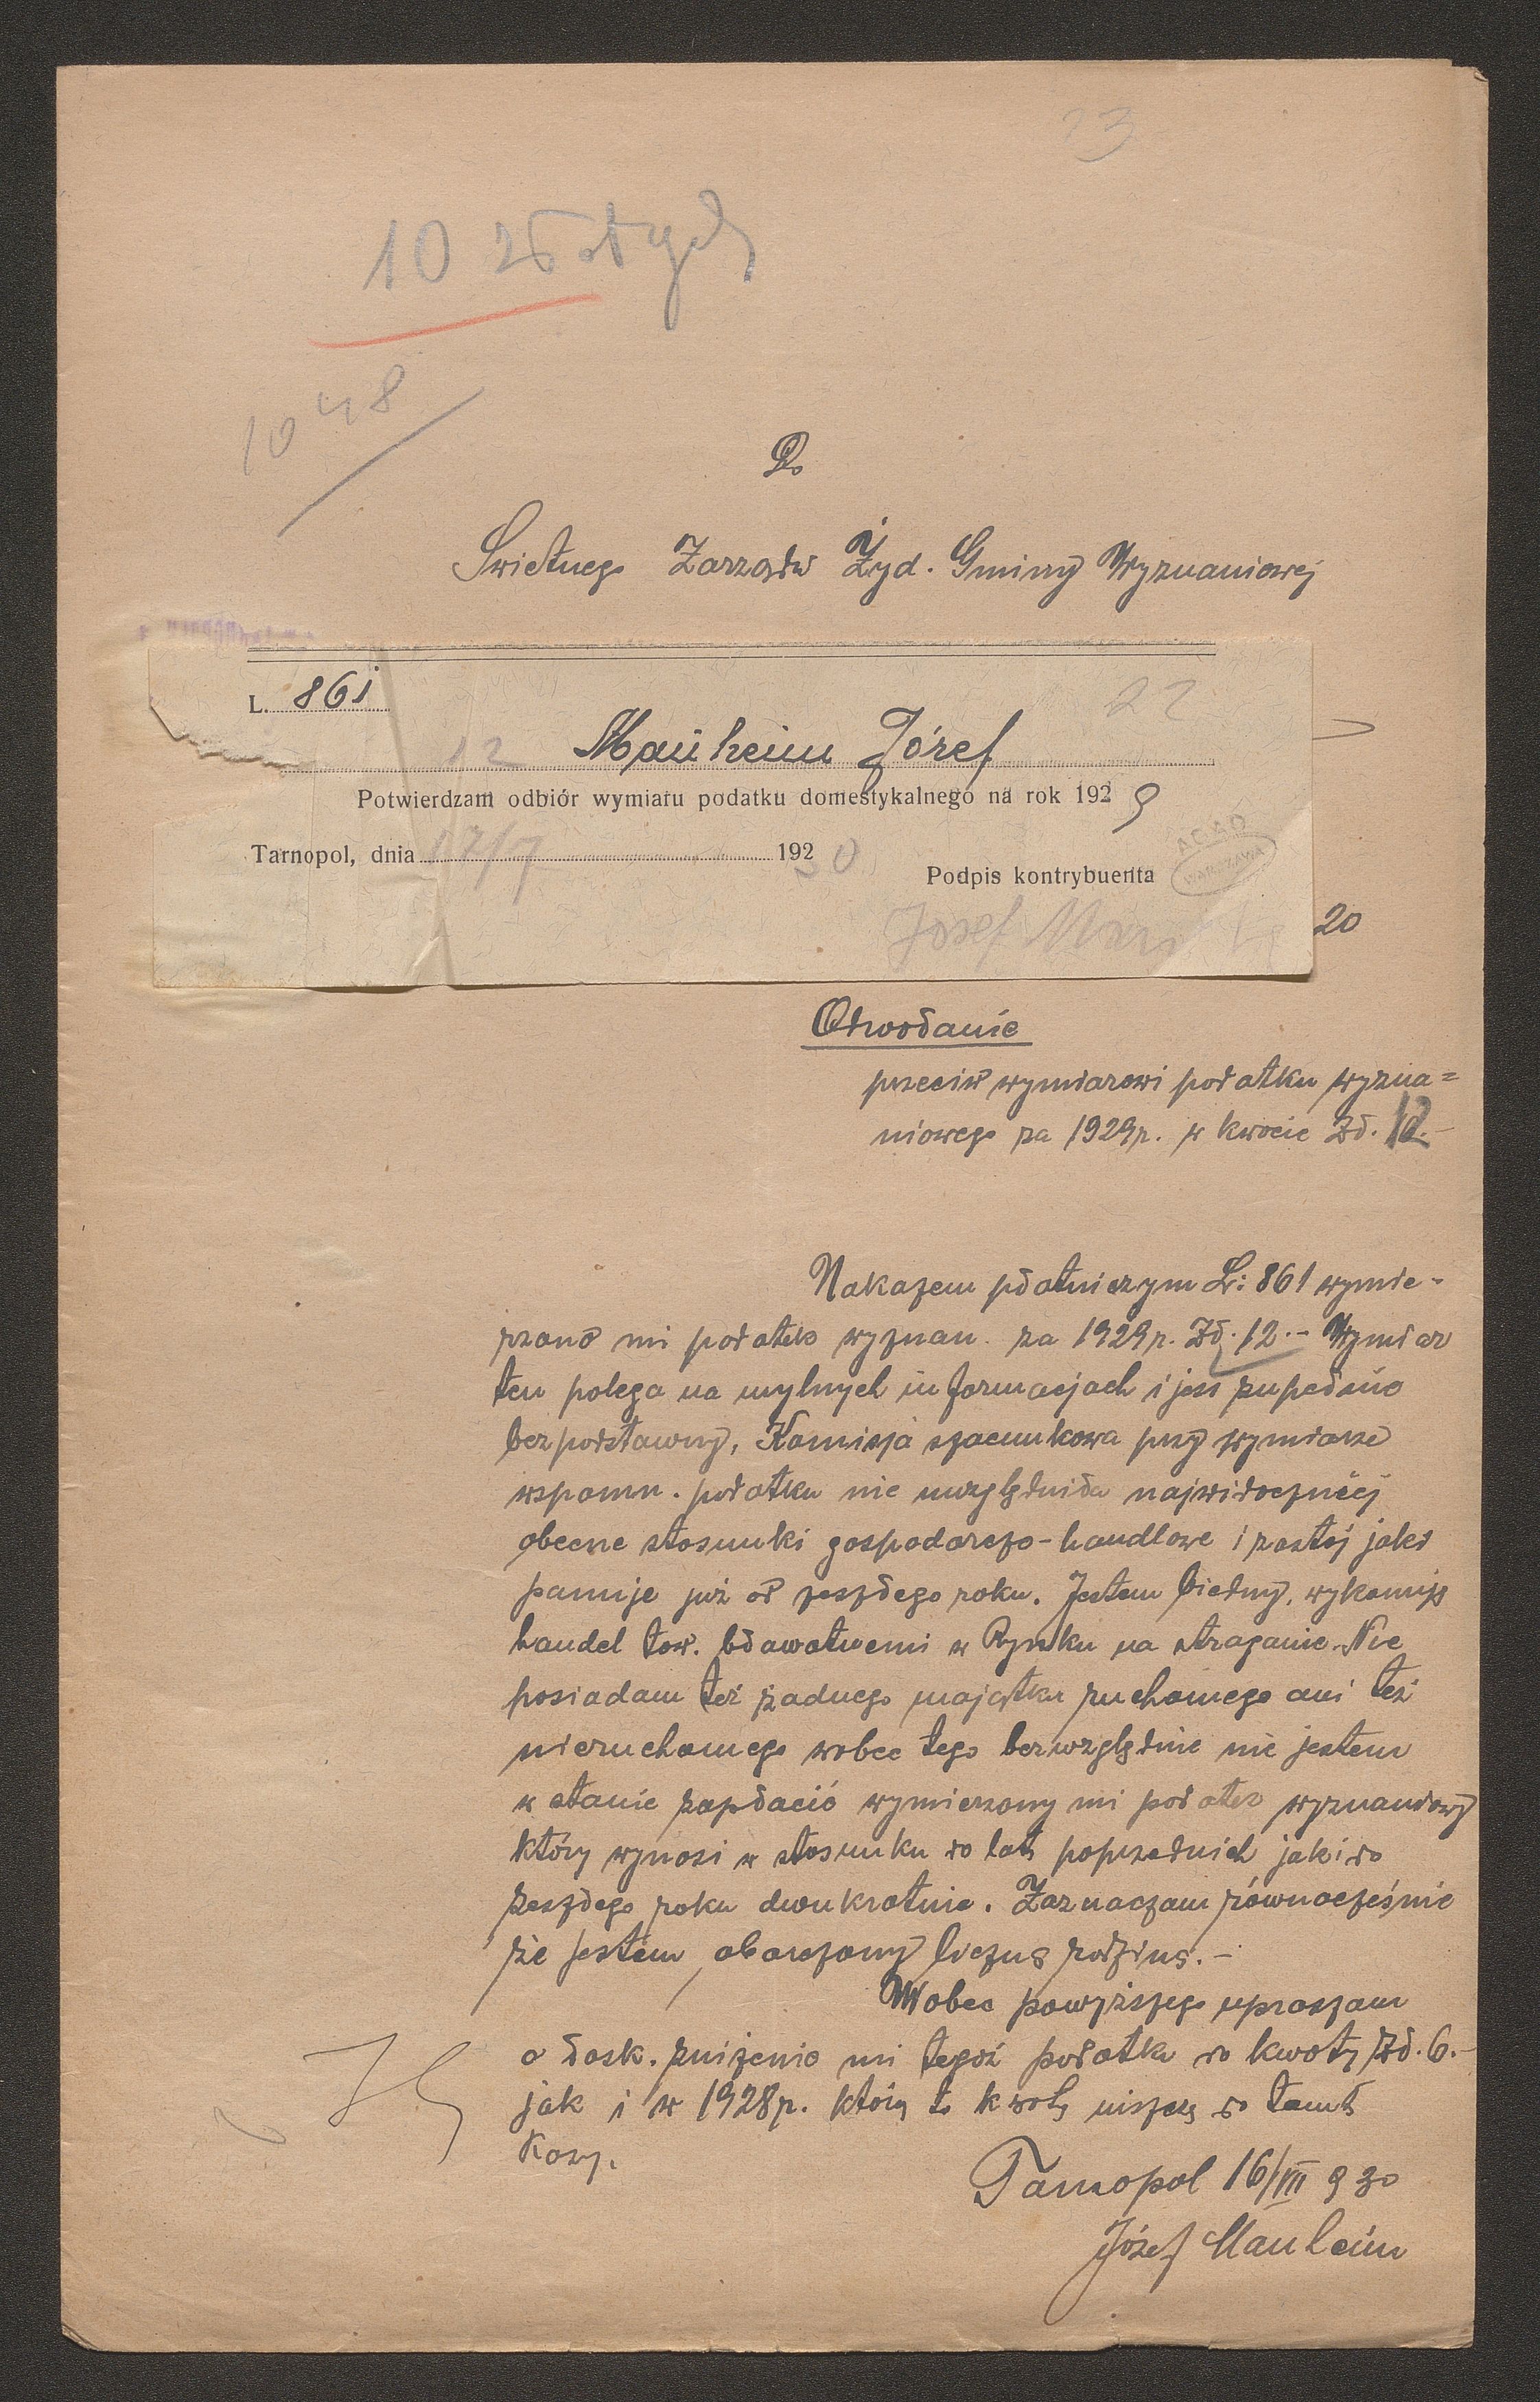 23
10 złotych
1048
Do
Swietnego Zarządu Żyd. Gminy Wyznaniowej
L. 861
22
12 Manheim Józef
Potwierdzam odbiór wymiaru podatku domestykalnego na rok 1929
Tarnopol, dnia 17/7 1920 30
Podpis kontrybuenta
WARSZAWA
Josef Man
20
Odwołanie
przeciw wymiarowi podatku wyzna=
niowego za 1929r. w kwocie Zł. 12.-
Nakazem płatniczym L: 861 wymie-
rzono mi podatek wyznan. za 1929r. Zł. 12.- Wymiar
ten polega na mylnych informacjach i jest zupełnie
bezpodstawny, Komisja szacunkowa przy wymiarze
wspomn. podatku nie uwzględniła najwidoczniej
obecne stosunki gospodarczo-handlowe i zastój jaki
panuje już od zeszłego roku. Jestem biedny, wykonuję
handel tow. bławatnemi w Rynku na straganie. Nie
posiadam też żadnego majątku ruchomego ani też
nieruchomego wobec tego bezwzględnie nie jestem
w stanie zapłacić wymierzony mi podatek wyznaniowy
który wynosi w stosunku do lat poprzednich jak i do
zeszłego roku dwukrotnie. Zaznaczam równocześnie
że jestem obarczony liczną rodziną.-
Wobec powyższego upraszam
o łask. zniżenie mi tegoż podatku do kwoty Zł. 6.-
jak i w 1928r. którą to kwotę uiszczę do tamt.
Kasy.
Tarnopol 16/VII 930
Józef Manheim